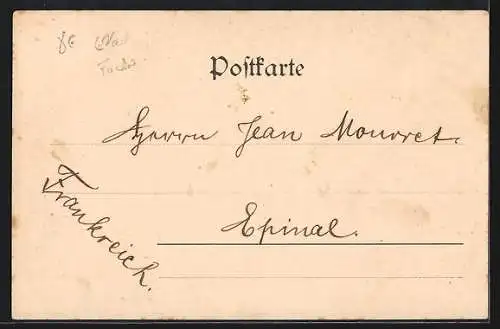 Postkarte
Herrn Jean Mourret.
Epinal.
Frankreich.